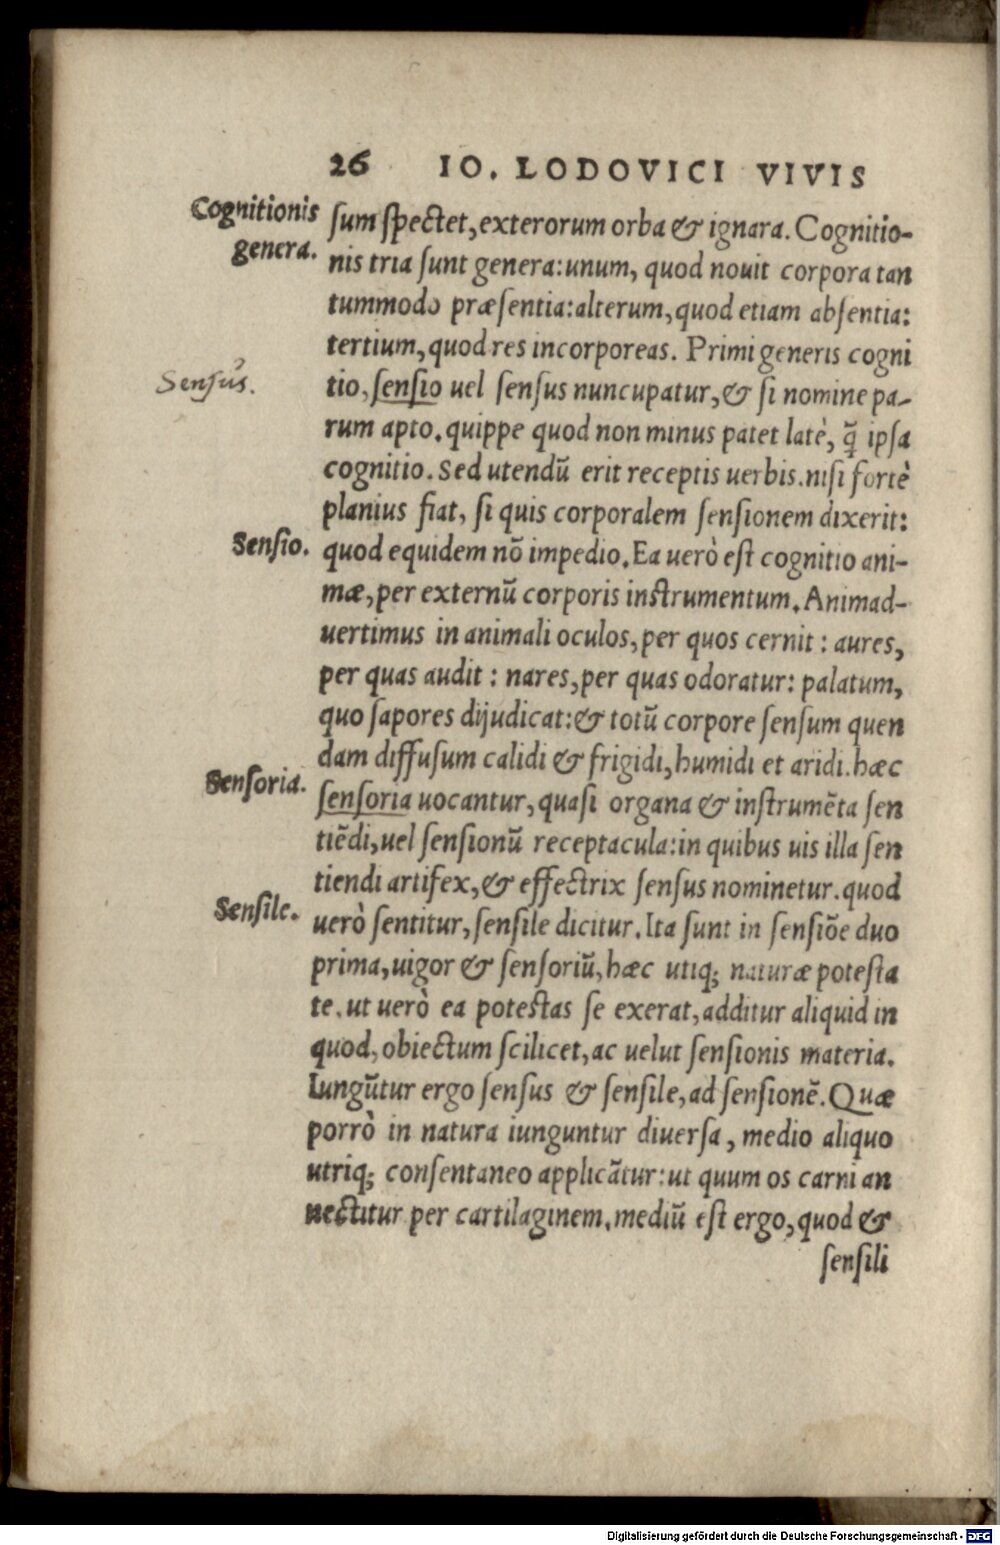 26 IO. LODOVICI VIVIS
Cognitionis
genera.
ſum ſpectet, exterorum orba & ignara. Cognitio-
nis tria ſunt genera: unum, quod nouit corpora tan
tummodo præſentia: alterum, quod etiam abſentia:
tertium, quod res incorporeas. Primi generis cogni
Senſus.
tio, ſenſio uel ſenſus nuncupatur, & ſi nomine pa-
rum apto. quippe quod non minus patet latè, q̃ ipſa
cognitio. Sed utendũ erit receptis uerbis. niſi fortè
planius fiat, ſi quis corporalem ſenſionem dixerit:
Senſio.
quod equidem nõ impedio. Ea uerò eſt cognitio ani-
mæ, per externũ corporis inſtrumentum. Animad-
uertimus in animali oculos, per quos cernit: aures,
per quas audit: nares, per quas odoratur: palatum,
quo ſapores dijudicat: & totũ corpore ſenſum quen
dam diffuſum calidi & frigidi, humidi et aridi. hæc
Senſoria.
ſenſoria uocantur, quaſi organa & inſtrumẽta ſen
tiẽdi, uel ſenſionũ receptacula: in quibus uis illa ſen
tiendi artifex, & effectrix ſenſus nominetur. quod
Senſile.
uerò ſentitur, ſenſile dicitur. Ita ſunt in ſenſiõe duo
prima, uigor & ſenſoriũ, hæc utiq; naturæ poteſta
te. ut uerò ea poteſtas ſe exerat, additur aliquid in
quod, obiectum ſcilicet, ac uelut ſenſionis materia.
Iungũtur ergo ſenſus & ſenſile, ad ſenſionẽ. Quæ
porrò in natura iunguntur diuerſa, medio aliquo
utriq; conſentaneo applicãtur: ut quum os carni an
nectitur per cartilaginem. mediũ eſt ergo, quod &
ſenſili
Digitalisierung gefördert durch die Deutsche Forschungsgemeinschaft - DFG